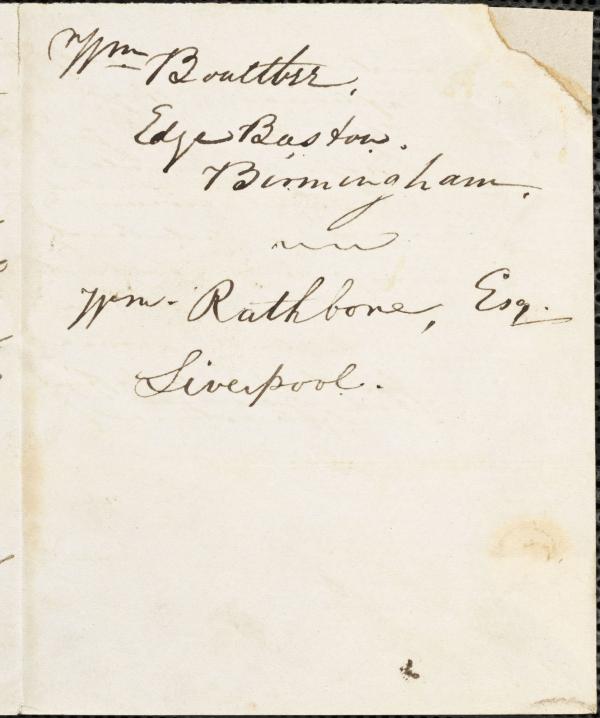 Wm Boultbee,
Edge Baston.
Birmingham.
Wm. Rathbone, Esq.
Liverpool.